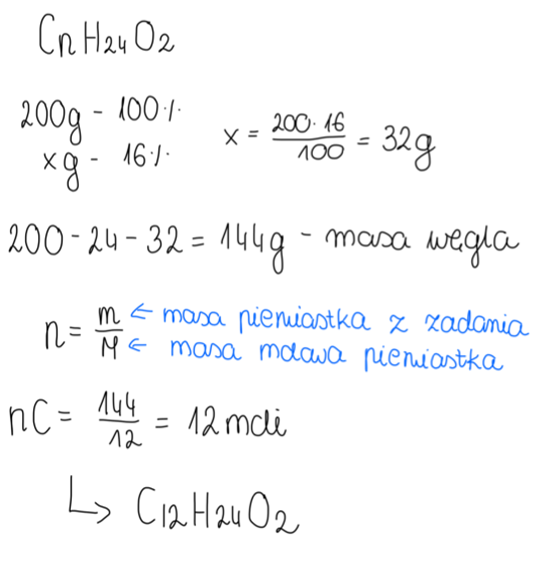 CnH24O2
200g - 100%
xg - 16%
x = 200·16/100 = 32g
200 - 24 - 32 = 144g - masa węgla
n = m/M
← masa pierwiastka z zadania
← masa molowa pierwiastka
nC = 144/12 = 12 moli
↳ C12H24O2